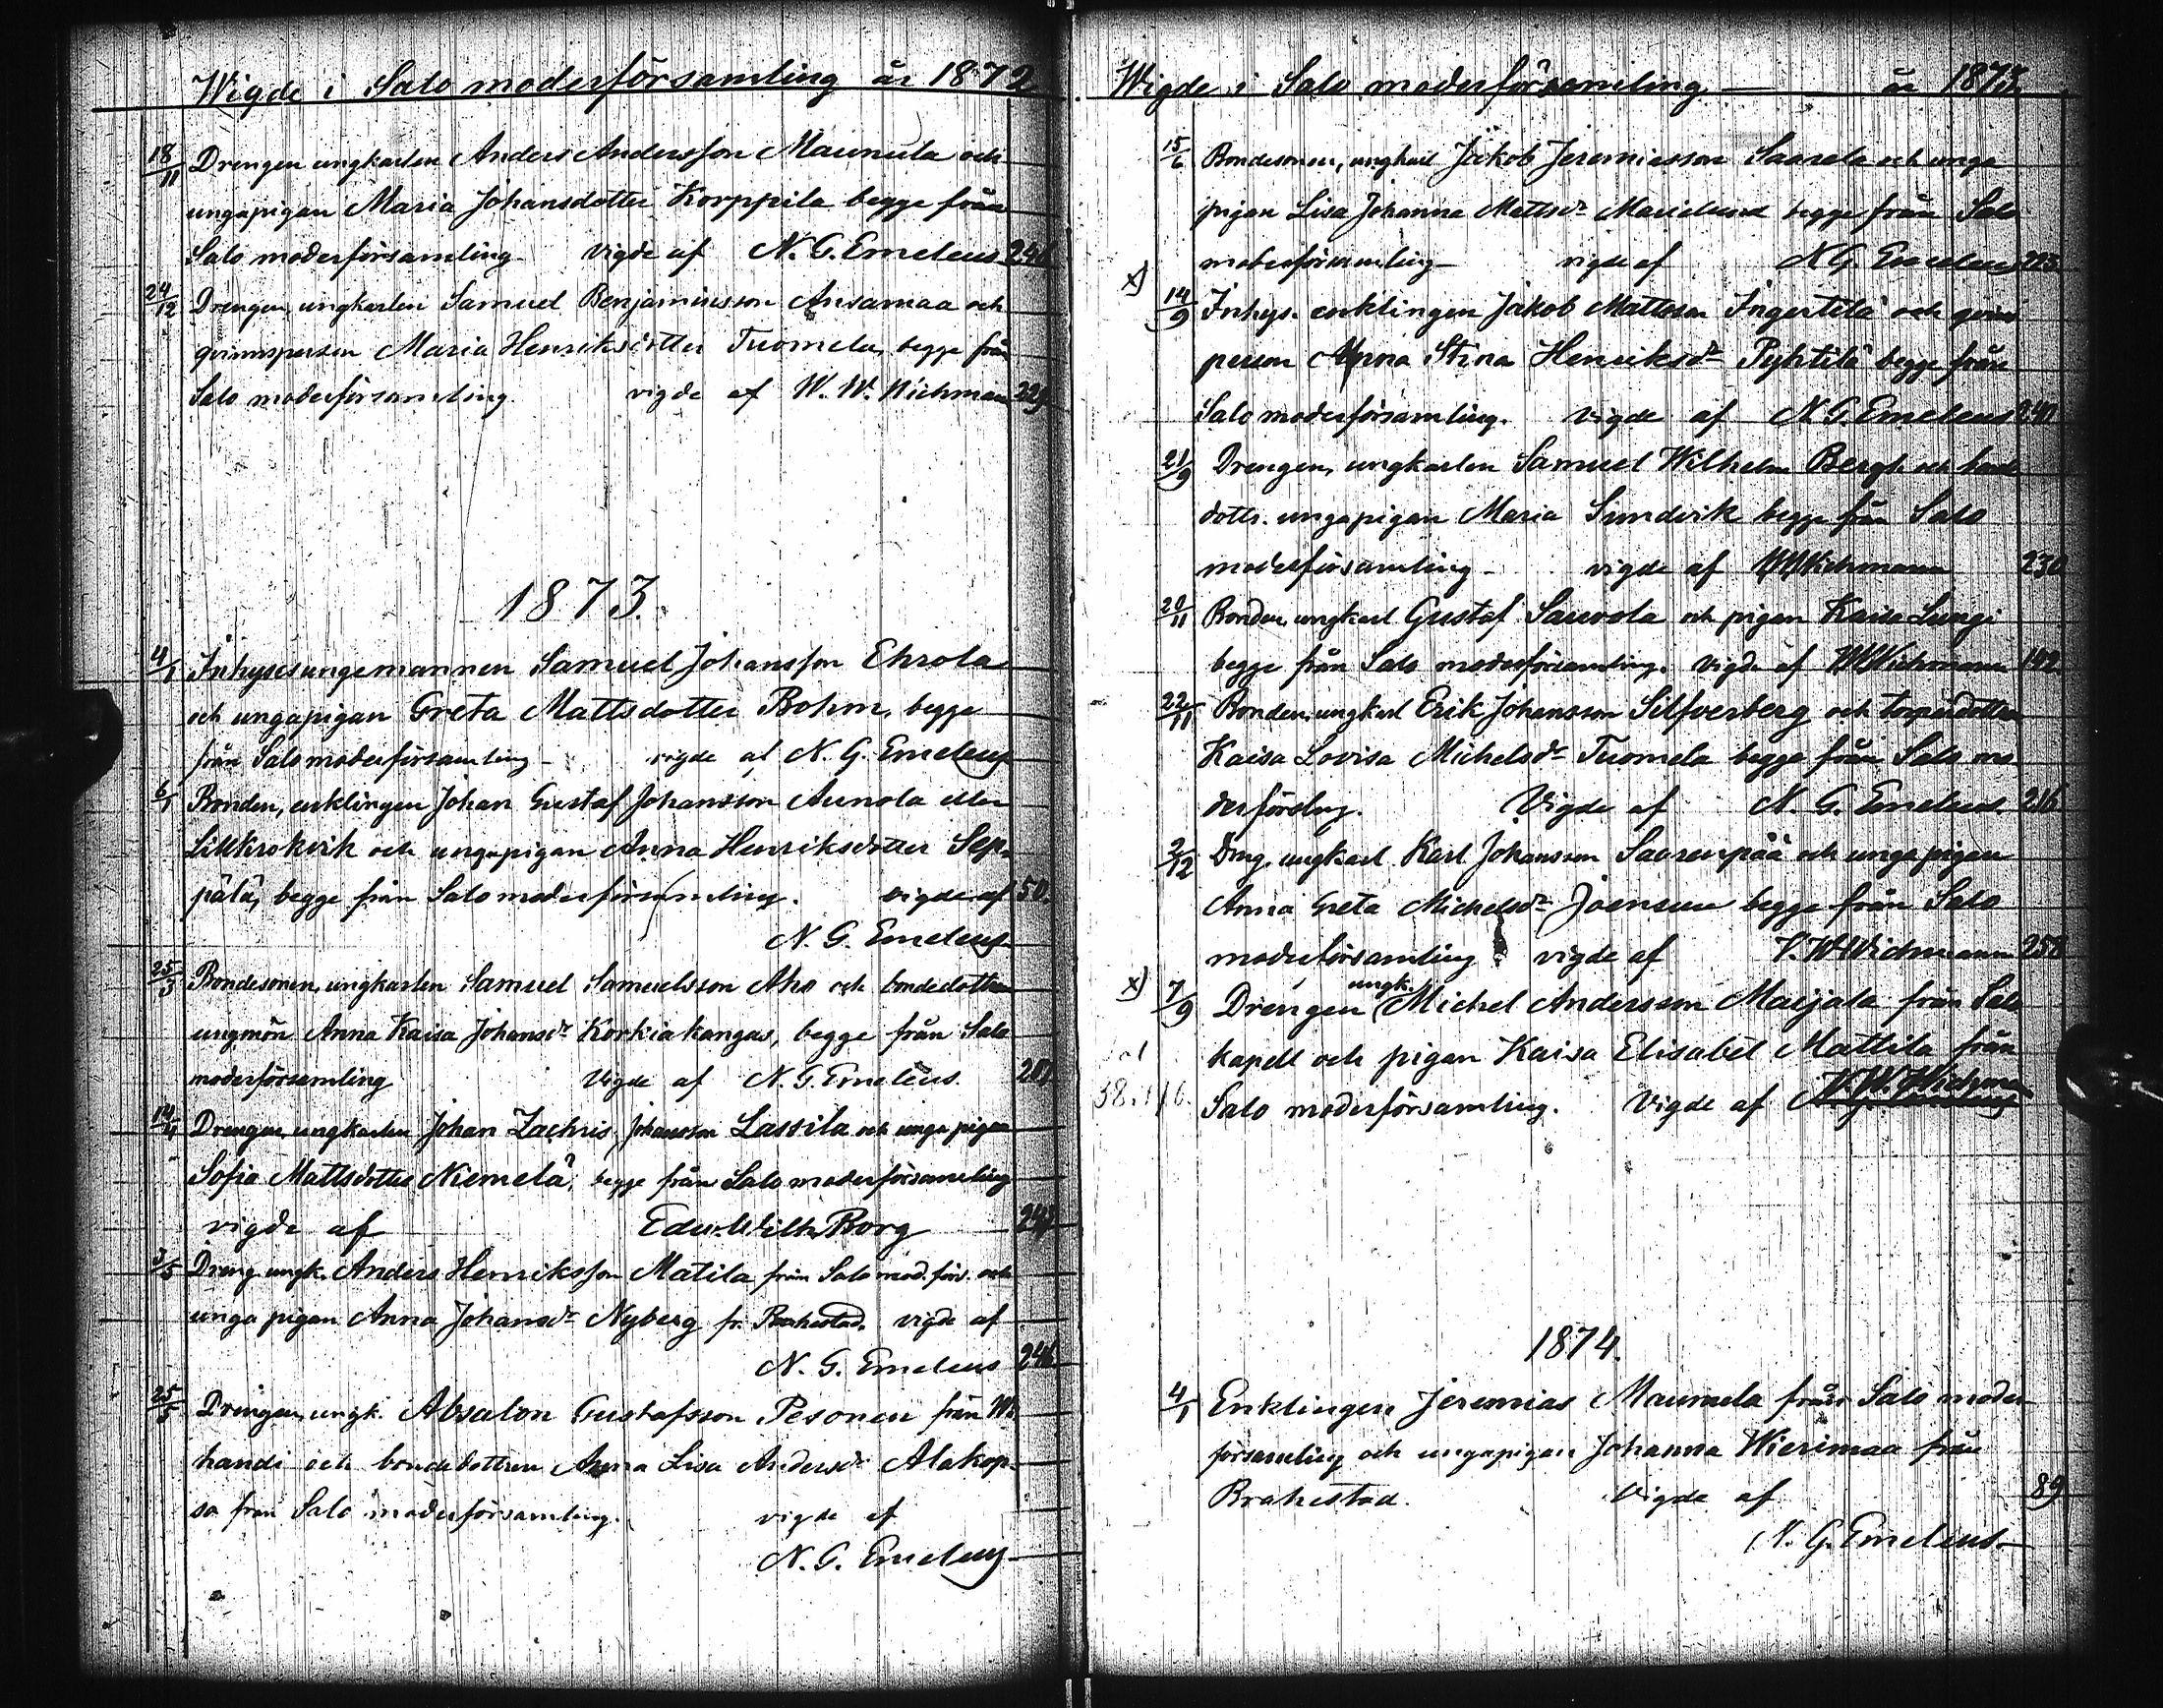 Wigde i Salo moderförsamling år 1872
18/11 Drengen ungkarlen Anders Andersson Maunula och
ungapigan Maria Johansdotter Korppila begge från
Salo moderförsamling vigde af N. G. Emeleus 246
24/12 Drengen, ungkarlen Samuel Benjaminsson Ansamaa och
qvinnsperson Maria Henriksdotter Tuomela, begge från
Salo moderförsamling. vigde af W. W. Wichmann 229
1873.
4/1 Inhysesungemannen Samuel Johansson Ehrola
och ungapigan Greta Mattsdotter Bohm, begge
från Salo moderförsamling vigde af N. G. Emeleus
6/1 Bonden, enklingen Johan Gustaf Johansson Aunola eller
och ungapigan Anna Henriksdotter Sep-
pälä, begge från Salo moderförsamling. vigde af 50.
N. G. Emeleus
25/3 Bondesonen, ungkarlen Samuel Samuelsson Aho och bondedottren
ungmön Anna Kaisa Johansdr Korkiakangas, begge från Salo
moderförsamling Vigde af N. G. Emeleus.
14/4 Drengen, ungkarlen Johan Zachris Johansson Lassila och unga pigan
Sofia Mattsdotter Niemelä, begge från Salo moderförsamling
vigde af Edw. Wilh. Borg
3/5 Dreng. ungk. Anders Henriksson Matila från Salo mod. förs. och
unga pigan Anna Johansdr Nyberg fr. Brahestad. vigde af
N. G. Emeleus 246
25/5 Drengen, ungk. Absalon Gustafsson Pesonen från Wi-
handi och bondedottren Anna Lisa Andersdr Alakop-
sa från Salo moderförsamling. vigde af
N. G. Emeleus
Wigde i Salo moderförsamling år 1873
15/6 Bondesonen, ungkarl Jakob Jeremiasson Saarela och unga
pigan Lisa Johanna Mattsdr Marielund begge från Salo
moderförsamling vigde af N. G. Emeleus 223
x) 14/9 Inhys. enklingen Jakob Mattsson Ingertilä och qvinns
person Anna Stina Henriksdr Pyhtilä begge från
Salo moderförsamling. vigde af N. G. Emeleus
21/9 Drengen, ungkarlen Samuel Wilhelm Bergh och bonde
dottr. ungapigan Maria Sundvik begge från Salo
moderförsamling vigde af WWWichmann 230
20/11 Bonden, ungkarl Gustaf Sauvola och pigan Kaisa Lungi
begge från Salo moderförsamling. vigde af WWWichmann
22/11 Bonden, ungkarl Erik Johansson Silfverberg och torpardottren
Kaisa Lovisa Michelsdr Tuomela begge från Salo mo
derförslng. Vigde af N. G. Emeleus. 216
2/12 Drng. ungkarl Karl Johansson Saarenpää och unga pigan
Anna Greta Michelsdr Joensuu begge från Salo
moderförsamling vigde af V. W. Wichmann 258
x) 7/9 Drengen ungk. Michel Andersson Maijala från Salo
kapell och pigan Kaisa Elisabet Mattila från
Salo moderförsamling. Vigde af W. W. Wichmann
1874.
4/1 Enklingen Jeremias Maunula från Salo moder
församling och ungapigan Johanna Wierimaa från
Brahestad. Vigde af 89
N. G. Emeleus.